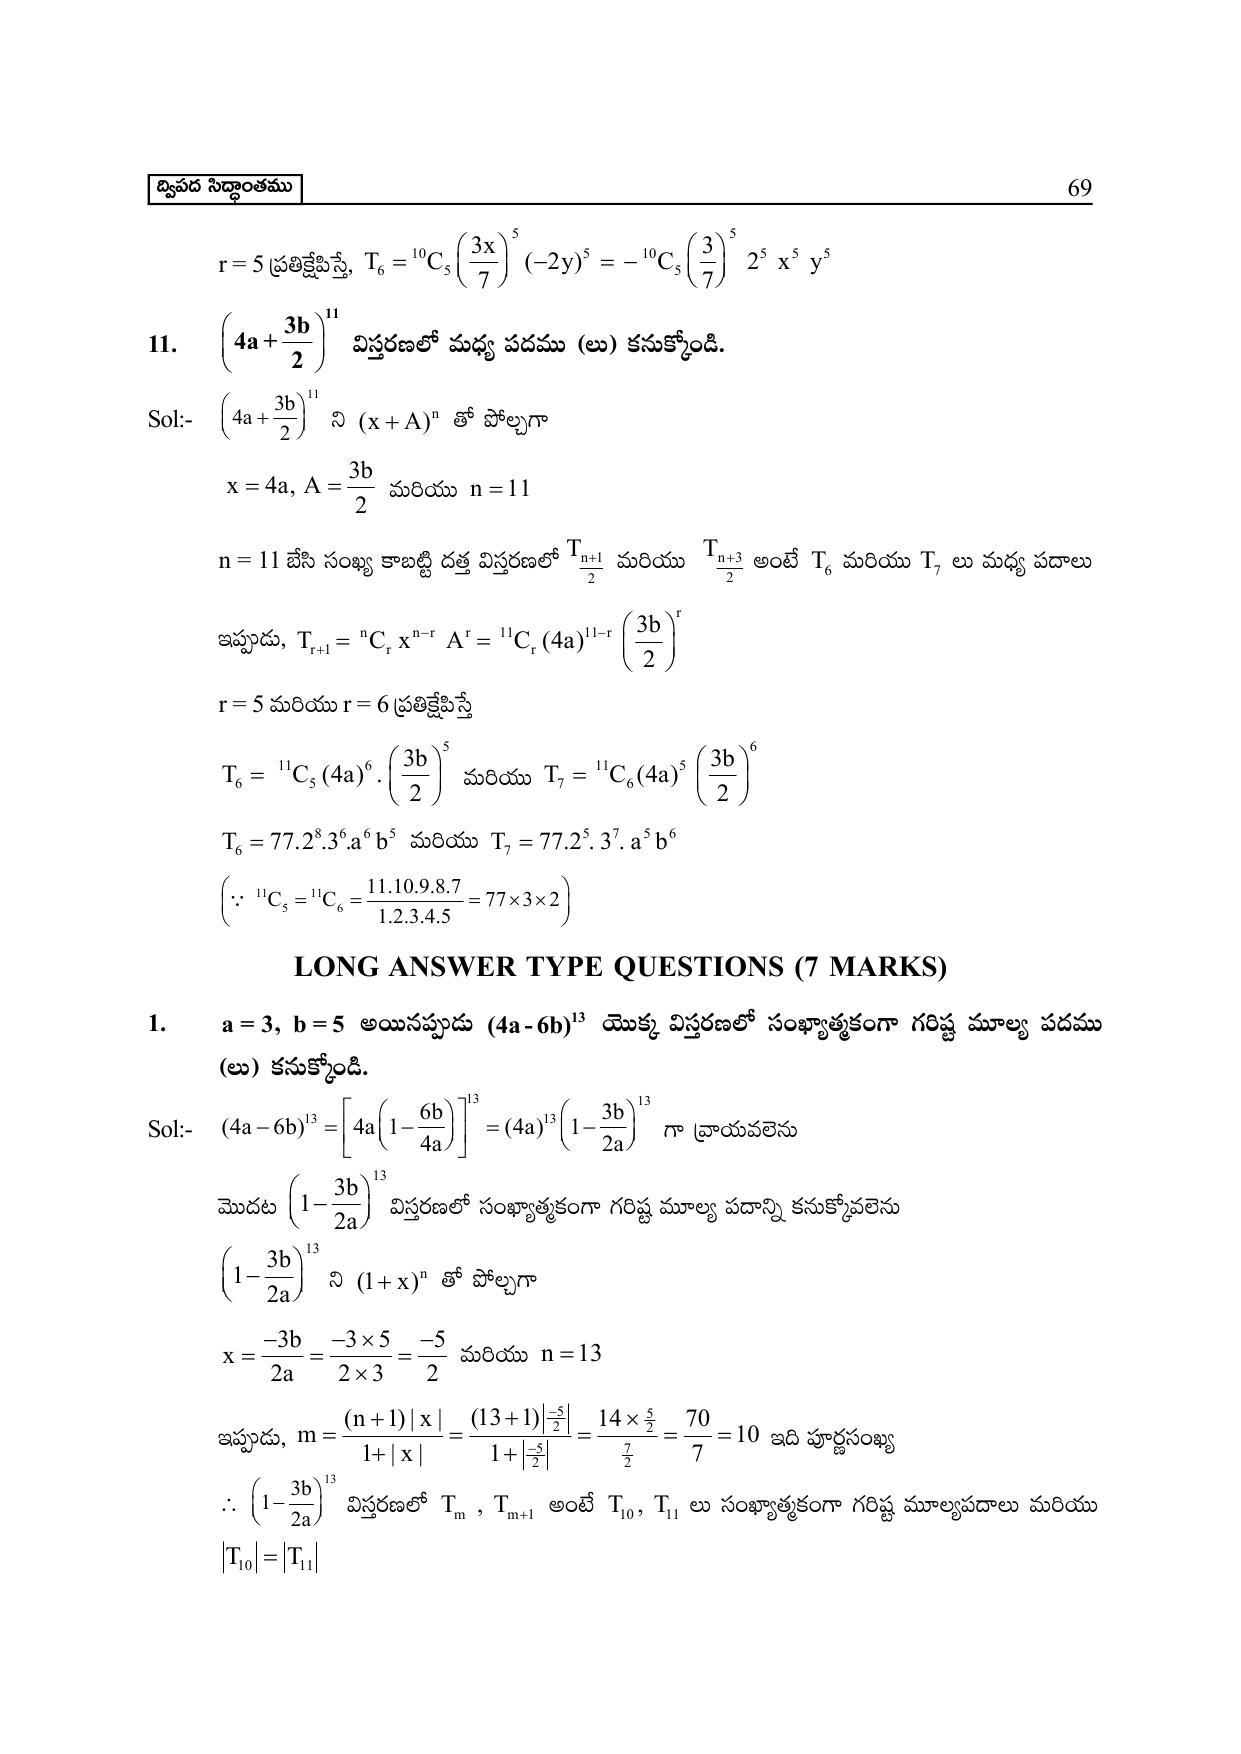 ద్విపద సిద్ధాంతము 69
r = 5 ప్రతిక్షేపిస్తే, T₆ = ¹⁰C₅ (3x/7)⁵ (−2y)⁵ = − ¹⁰C₅ (3/7)⁵ 2⁵ x⁵ y⁵
11. (4a + 3b/2)¹¹ విస్తరణలో మధ్య పదము (లు) కనుక్కోండి.
Sol:- (4a + 3b/2)¹¹ ని (x + A)ⁿ తో పోల్చగా
x = 4a, A = 3b/2 మరియు n = 11
n = 11 బేసి సంఖ్య కాబట్టి దత్త విస్తరణలో T_((n+1)/2) మరియు T_((n+3)/2) అంటే T₆ మరియు T₇ లు మధ్య పదాలు
ఇప్పుడు, T_(r+1) = ⁿC_r x^(n−r) A^r = ¹¹C_r (4a)^(11−r) (3b/2)^r
r = 5 మరియు r = 6 ప్రతిక్షేపిస్తే
T₆ = ¹¹C₅ (4a)⁶ . (3b/2)⁵ మరియు T₇ = ¹¹C₆ (4a)⁵ (3b/2)⁶
T₆ = 77.2⁸.3⁶.a⁶ b⁵ మరియు T₇ = 77.2⁵. 3⁷. a⁵ b⁶
(∵ ¹¹C₅ = ¹¹C₆ = 11.10.9.8.7/1.2.3.4.5 = 77 × 3 × 2)
LONG ANSWER TYPE QUESTIONS (7 MARKS)
1. a = 3, b = 5 అయినప్పుడు (4a - 6b)¹³ యొక్క విస్తరణలో సంఖ్యాత్మకంగా గరిష్ట మూల్య పదము
(లు) కనుక్కోండి.
Sol:- (4a − 6b)¹³ = [4a(1 − 6b/4a)]¹³ = (4a)¹³ (1 − 3b/2a)¹³ గా వ్రాయవలెను
మొదట (1 − 3b/2a)¹³ విస్తరణలో సంఖ్యాత్మకంగా గరిష్ట మూల్య పదాన్ని కనుక్కోవలెను
(1 − 3b/2a)¹³ ని (1 + x)ⁿ తో పోల్చగా
x = −3b/2a = −3 × 5/2 × 3 = −5/2 మరియు n = 13
ఇప్పుడు, m = (n + 1) | x |/1 + | x | = (13 + 1)|−5/2|/1 + |−5/2| = 14 × 5/2/7/2 = 70/7 = 10 ఇది పూర్ణసంఖ్య
∴ (1 − 3b/2a)¹³ విస్తరణలో T_m , T_(m+1) అంటే T₁₀, T₁₁ లు సంఖ్యాత్మకంగా గరిష్ట మూల్యపదాలు మరియు
|T₁₀| = |T₁₁|